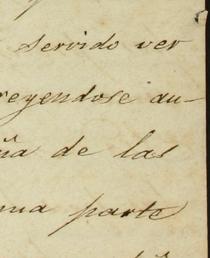 servido ver
reyendose au-
ña de las
nua parte